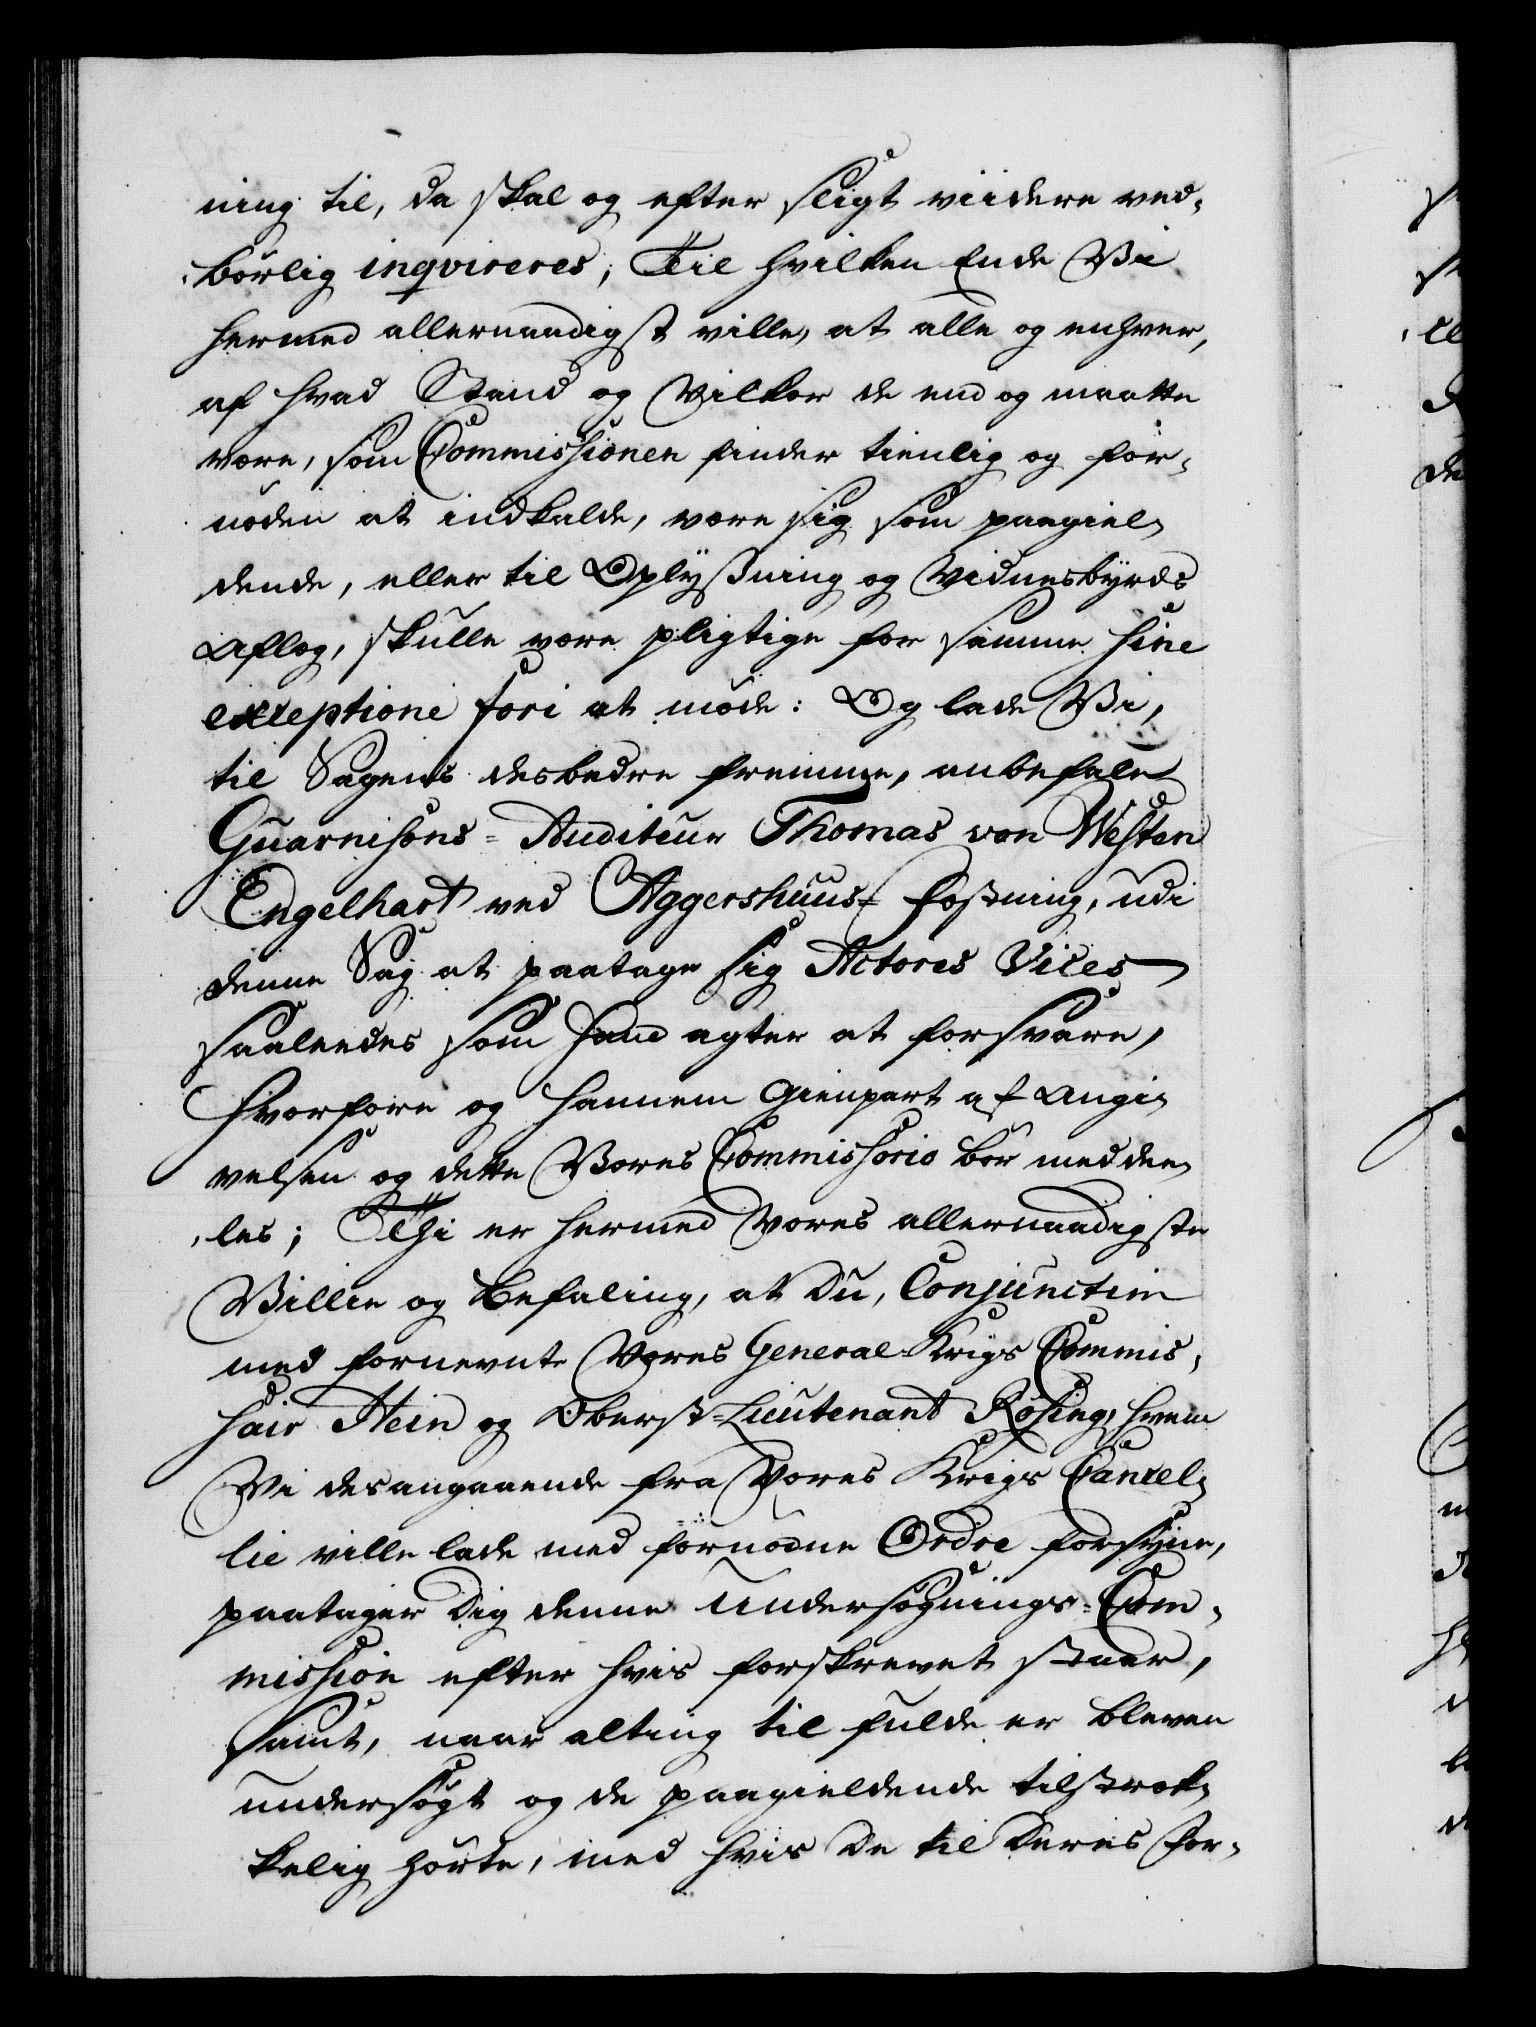 ning til, da skal og efter sligt viidere ved-
børlig inqvireres; Til hvilken Ende Vi
hermed allernaadigst ville, at alle og enhver,
af hvad Stand og Vilkor de end og maatte
være, som Commissionen finder tienlig og for-
nøden at indkalde, være sig som paagiel-
dende, eller til Oplysning og Vidnesbyrds
Aflæg, skulle være pligtige for samme sine
exceptione fori at møde: Og lade Vi,
til Sagens desbedre fremme, anbefale
Guarnisons-Auditeur Thomas von Westen
Engelhart ved Aggershuus-Fæstning, udi
denne Sag at paatage sig Actores Vices
saaledes som hand agter at forsvare,
hvorfore og hannem Gienpart af Angi-
velsen og dette Vores Commissorio bør meddee-
les; Thi er hermed Vores allernaadigste
Villie og Befaling, at Du, Conjunctim
med fornevnte Vores General Krigs Commis-
sair Hein og Oberst-Lieutenant Rosing, hvem
Vi desangaaende fra Vores Krigs Cancel-
lie ville lade med fornødne Ordre forsyne,
paatager Dig denne Undersøgnings-Com-
mission efter hvis forskrevet staar,
samt, naar alting til fulde er bleven
undersøgt og de paagieldende tilstræk-
kelig hørte, med hvis De til Deres For-